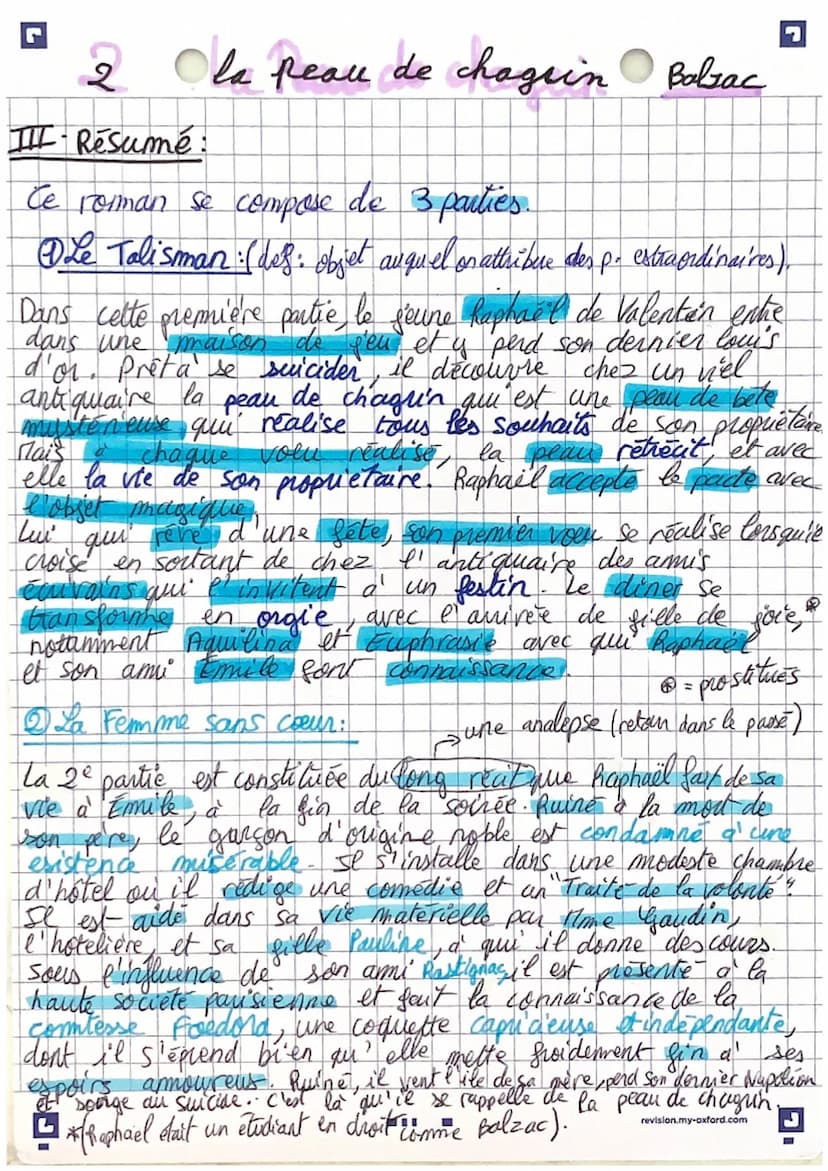 2 la peau de chagrin Balzac
III - Résumé :
Ce roman se compose de 3 parties.
① Le Talisman : (def : objet auquel on attribue des p. extraordinaires).
Dans cette première partie, le jeune Raphaël de Valentin entre
dans une maison de jeu et y perd son dernier louis
d'or. Prêt à se suicider, il découvre chez un viel
antiquaire la peau de chagrin qui est une peau de bête
mystérieuse qui réalise tous les souhaits de son propriétaire.
Mais à chaque voeu réalisé, la peau rétrécit, et avec
elle la vie de son propriétaire. Raphaël accepte le pacte avec
l'objet magique.
Lui qui rêve d'une fête, son premier voeu se réalise lorsqu'il
croise en sortant de chez l'antiquaire des amis
écrivains qui l'invitent à un festin. Le diner se
transforme en orgie, avec l'arrivée de fille de joie,⊛
notamment Aquilina et Euphrasie avec qui Raphaël
et son ami Émile font connaissance.
⊛ = prostitués
② La Femme sans cœur :
→ une analepse (retour dans le passé)
La 2e partie est constituée du long récit que Raphaël fait de sa
vie à Émile, à la fin de la soirée. Ruiné à la mort de
son père, le garçon d'origine noble est condamné à une
existence misérable. Il s'installe dans une modeste chambre
d'hôtel où il rédige une comédie et un "Traité de la volonté".
Il est aidé dans sa vie matérielle par Mme Gaudin,
l'hotelière, et sa fille Pauline, à qui il donne des cours.
Sous l'influence de son ami Rastignac, il est présenté à la
haute société parisienne et fait la connaissance de la
comtesse Foedora, une coquette capricieuse et indépendante,
dont il s'éprend bien qu'elle mette froidement fin à ses
espoirs amoureux. Ruiné, il vent l'ile de sa mère, perd son dernier Napoléon
et songe au suicide. c'est là qu'il se rappelle de la peau de chagrin.
*(Raphaël était un étudiant en droit comme Balzac).
revision.my-oxford.com